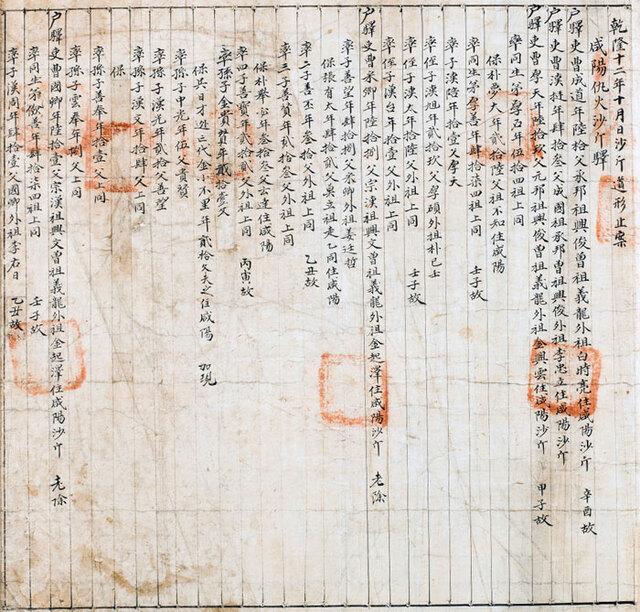 乾隆十二年十月日沙斤道形止案
咸陽 火沙斤驛
戶驛吏曺成道年陸拾父承邦祖興俊曾祖義龍外祖白時亮住咸陽沙斤 辛酉故
戶驛吏曺漢挺年肆拾叁父成國祖承邦曾祖興俊外祖李忠立住咸陽沙斤
戶驛吏曺孝天年陸拾玖父元邦祖興俊曾祖義龍外祖金興雲住咸陽沙斤 甲子故
率同生弟孝百年伍拾四祖上同
保朴夢大年貳拾陸父祖不知住咸陽
率同生弟孝善年肆拾柒四祖上同 壬子故
率子漢 年拾壹父孝天
率侄子漢旭年貳拾玖父孝碩外祖朴已士
率侄子漢太年拾陸父外祖上同 壬子故
率侄子漢台年拾壹父外祖上同
戶驛吏曺承卿年陸拾捌父宗漢祖興文曾祖義龍外祖金起澤住咸陽沙斤 老除
率子善望年肆拾捌父承卿外祖姜廷哲
保張有太年肆拾貳父 立祖走乙同住咸陽
率二子善丕年叁拾父外祖上同 乙丑故
率三子善贊年貳拾叁父外祖上同
保朴 年叁拾叁父云達住咸陽
率四子善寶年貳拾貳父外祖上同 丙寅故
率孫子金 年貳拾壹父
保吳日才 金小不里年貳拾父夫之住咸陽 加現
率孫子申光年伍父善贊
率孫子漢光年貳拾父善望
率孫子漢文年拾肆父上同
保
率孫子善奉年拾壹父上同
率孫子雲奉年捌父上同
戶驛吏曺國卿年陸拾壹父宗漢祖興文曾祖義龍外祖金起澤住咸陽沙斤 老除
率同生弟 年肆拾柒四祖上同 壬子故
率子漢周年肆拾壹父國卿外祖李右日 乙丑故